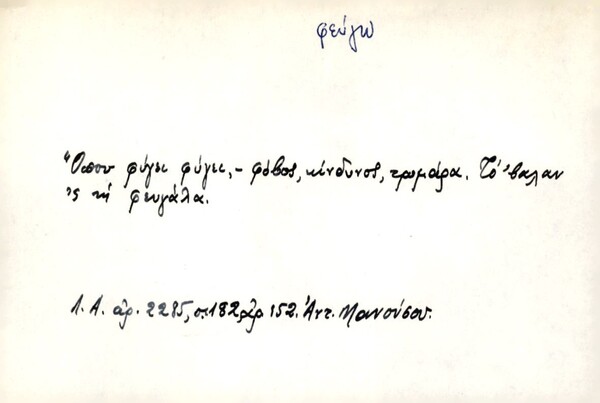 φεύγω
Ὅπου φύγει φύγει, - φόβος, κίνδυνος, τρομάρα. Τό 'βαλαν
'ς τή φευγάλα.
Λ. Α. ἀρ. 2285, σ. 182, ἀρ 152. Ἀντ. Μανούσου.